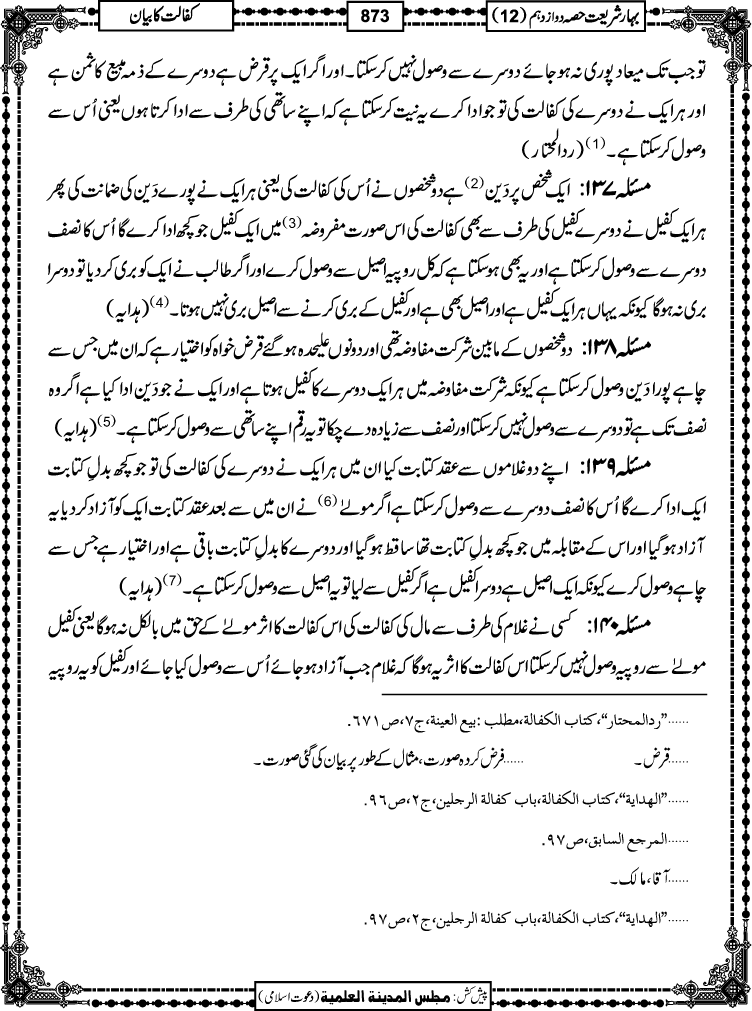 بہارِ شریعت حصہ دوازدہم (12)
873
کفالت کا بیان
تو جب تک میعاد پوری نہ ہوجائے دوسرے سے وصول نہیں کرسکتا۔ اور اگر ایک پر قرض ہے دوسرے کے ذمہ مبیع کا ثمن ہے
اور ہر ایک نے دوسرے کی کفالت کی تو جو ادا کرے یہ نیت کرسکتا ہے کہ اپنے ساتھی کی طرف سے ادا کرتا ہوں یعنی اُس سے
وصول کرسکتا ہے۔(1) (ردالمحتار)
مسئلہ ۱۳۷: ایک شخص پر دَین(2) ہے دو شخصوں نے اُس کی کفالت کی یعنی ہر ایک نے پورے دَین کی ضمانت کی پھر
ہر ایک کفیل نے دوسرے کفیل کی طرف سے بھی کفالت کی اس صورت مفروضہ(3) میں ایک کفیل جو کچھ ادا کرے گا اُس کا نصف
دوسرے سے وصول کرسکتا ہے اور یہ بھی ہوسکتا ہے کہ کل روپیہ اصیل سے وصول کرے اور اگر طالب نے ایک کو بری کردیا تو دوسرا
بری نہ ہوگا کیونکہ یہاں ہر ایک کفیل ہے اور اصیل بھی ہے اور کفیل کے بری کرنے سے اصیل بری نہیں ہوتا۔(4) (ہدایہ)
مسئلہ ۱۳۸: دو شخصوں کے مابین شرکت مفاوضہ تھی اور دونوں علیحدہ ہوگئے قرض خواہ کو اختیار ہے کہ ان میں جس سے
چاہے پورا دَین وصول کرسکتا ہے کیونکہ شرکت مفاوضہ میں ہر ایک دوسرے کا کفیل ہوتا ہے اور ایک نے جو دَین ادا کیا ہے اگر وہ
نصف تک ہے تو دوسرے سے وصول نہیں کرسکتا اور نصف سے زیادہ دے چکا تو یہ رقم اپنے ساتھی سے وصول کرسکتا ہے۔(5) (ہدایہ)
مسئلہ ۱۳۹: اپنے دو غلاموں سے عقد کتابت کیا ان میں ہر ایک نے دوسرے کی کفالت کی تو جو کچھ بدلِ کتابت
ایک ادا کرے گا اُس کا نصف دوسرے سے وصول کرسکتا ہے اگر مولےٰ(6) نے ان میں سے بعد عقد کتابت ایک کو آزاد کردیا یہ
آزاد ہوگیا اور اس کے مقابلہ میں جو کچھ بدلِ کتابت تھا ساقط ہوگیا اور دوسرے کا بدلِ کتابت باقی ہے اور اختیار ہے جس سے
چاہے وصول کرے کیونکہ ایک اصیل ہے دوسرا کفیل ہے اگر کفیل سے لیا تو یہ اصیل سے وصول کرسکتا ہے۔(7) (ہدایہ)
مسئلہ ۱۴۰: کسی نے غلام کی طرف سے مال کی کفالت کی اس کفالت کا اثر مولےٰ کے حق میں بالکل نہ ہوگا یعنی کفیل
مولےٰ سے روپیہ وصول نہیں کرسکتا اس کفالت کا اثر یہ ہوگا کہ غلام جب آزاد ہوجائے اُس سے وصول کیا جائے اور کفیل کو یہ روپیہ
......"ردالمحتار"، کتاب الکفالة، مطلب: بیع العینة، ج۷، ص۶۷۱.
......قرض۔ ......فرض کردہ صورت، مثال کے طور پر بیان کی گئی صورت۔
......"الھدایة"، کتاب الکفالة، باب کفالة الرجلین، ج۲، ص۹۶.
......المرجع السابق، ص۹۷.
......آقا، مالک۔
......"الھدایة"، کتاب الکفالة، باب کفالة الرجلین، ج۲، ص۹۷.
پیش کش: مجلس المدینة العلمیة (دعوتِ اسلامی)